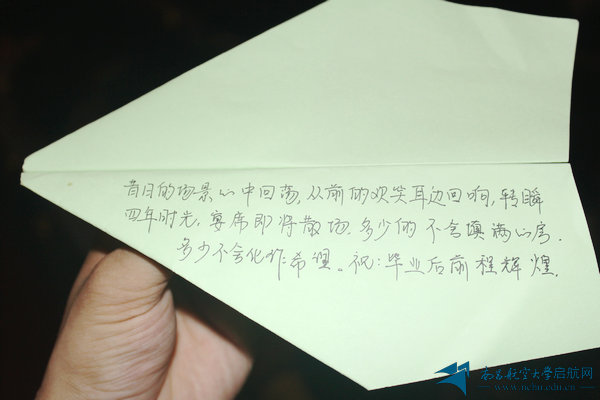 昔日的场景心中回荡,从前的欢笑耳边回响,转瞬
四年时光,宴席即将散场,多少的不舍填满心房.
多少不舍化作希望。祝:毕业后前程辉煌.
南昌航空大学启航网
www.nchu.edu.cn